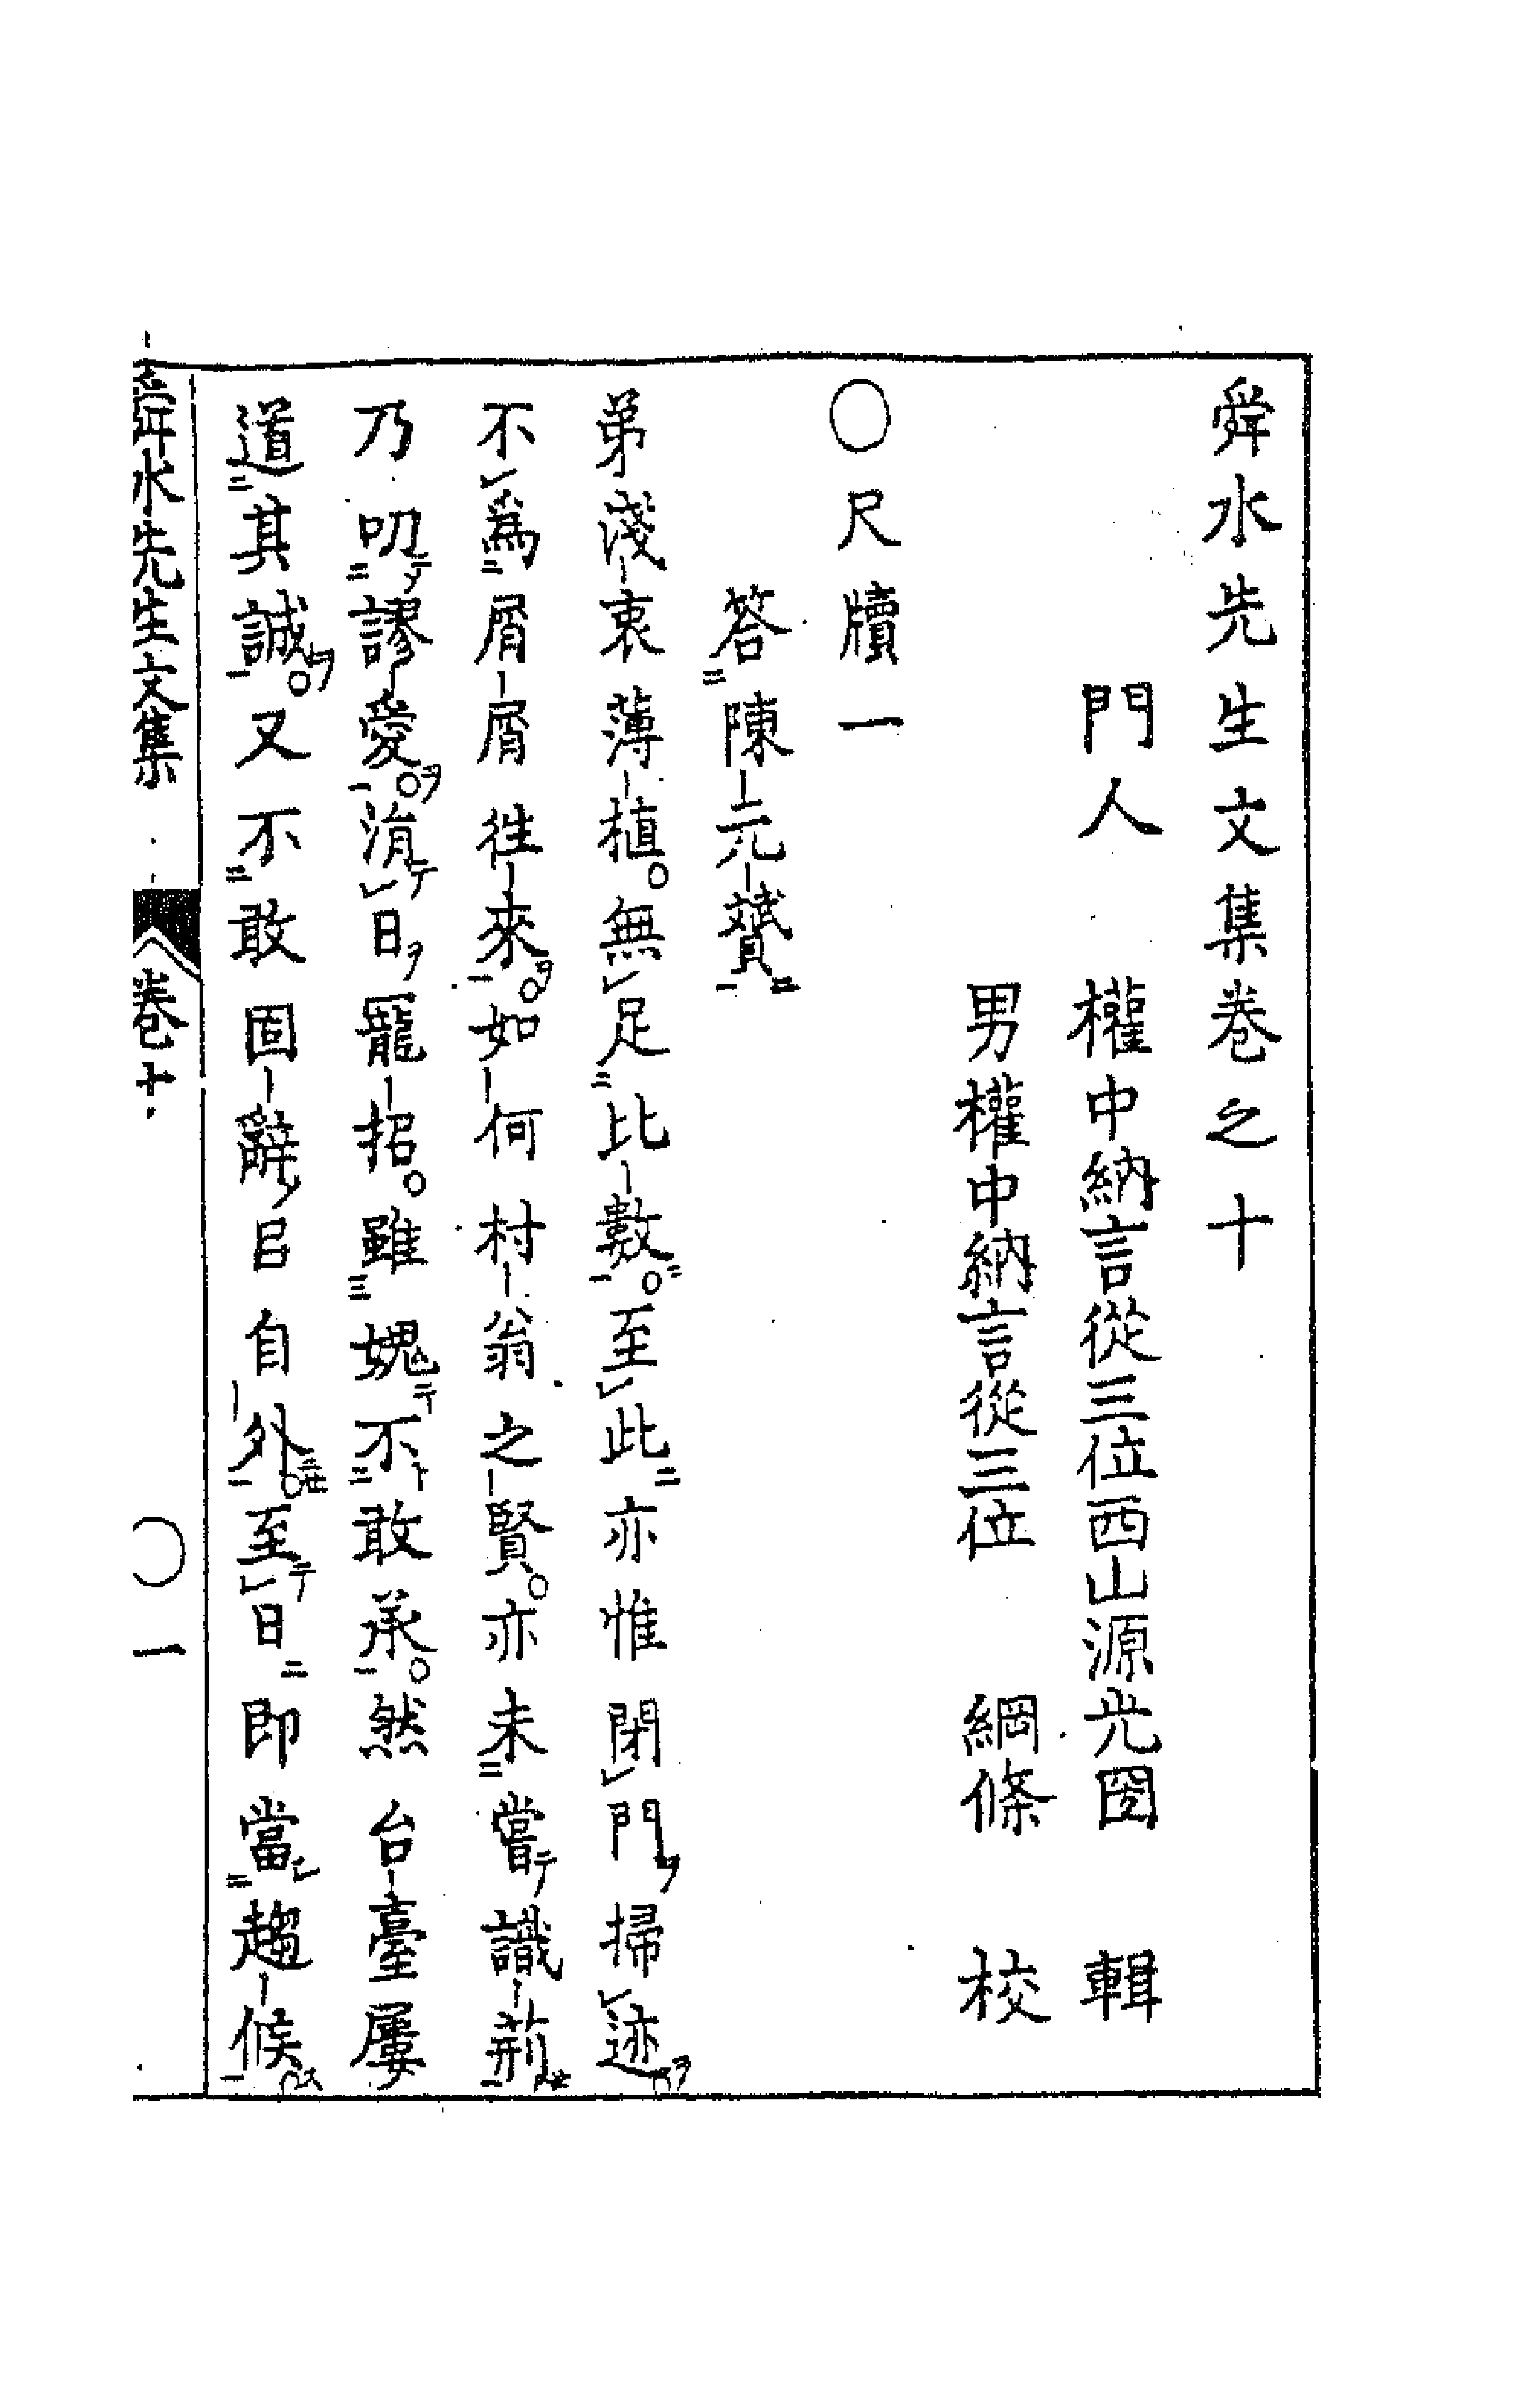 舜水先生文集卷之十
門人　權中納言從三位西山源光圀　輯
男權中納言從三位　綱條　校
○尺牘一
答陳元贇
弟淺衷薄植。無足比數。至此亦惟閉門掃迹。
不爲屑屑往來。如何村翁之賢。亦未嘗識荊
乃叨謬愛。涓日寵招。雖媿不敢承。然台臺屢
道其誠。又不敢固辭㠯自外。至日即當趨候。
舜水先生文集　卷十　○一